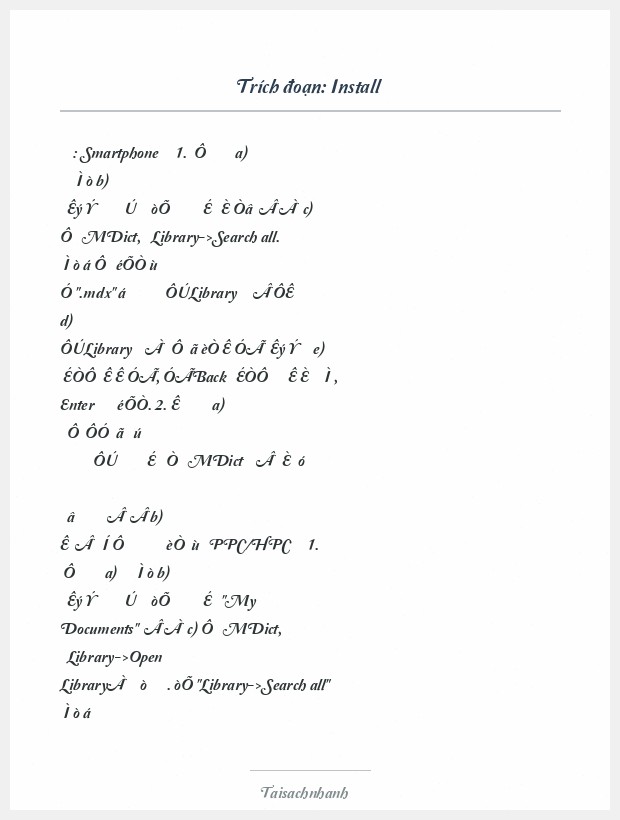 Trích đoạn: Install
: Smartphone 1. Ô a)
Ì ò b)
Êý Ý Ú òÕ É È Òâ Â À c)
Ô MDict, Library->Search all.
Ì ò á Ô éÕÒ ù
Ó ".mdx" á ÔÚLibrary Â ÔÊ
d)
ÔÚLibrary À Ô ã èÒ Ê ÓÃ Êý Ý e)
ÉÒÔ Ê Ê ÓÃ, ÓÃBack ÉÒÔ Ê È Ì ,
Enter éÕÒ. 2. Ê a)
Ô ÔÓ ã ú
ÔÚ É Ò MDict Â È ó
â Â Â b)
Ê Â Í Ô èÒ ù PPC/HPC 1.
Ô a) Ì ò b)
Êý Ý Ú òÕ É "My
Documents" Â À c) Ô MDict,
Library->Open
LibraryÀ ò . òÕ "Library->Search all"
Ì ò á
Taisachnhanh